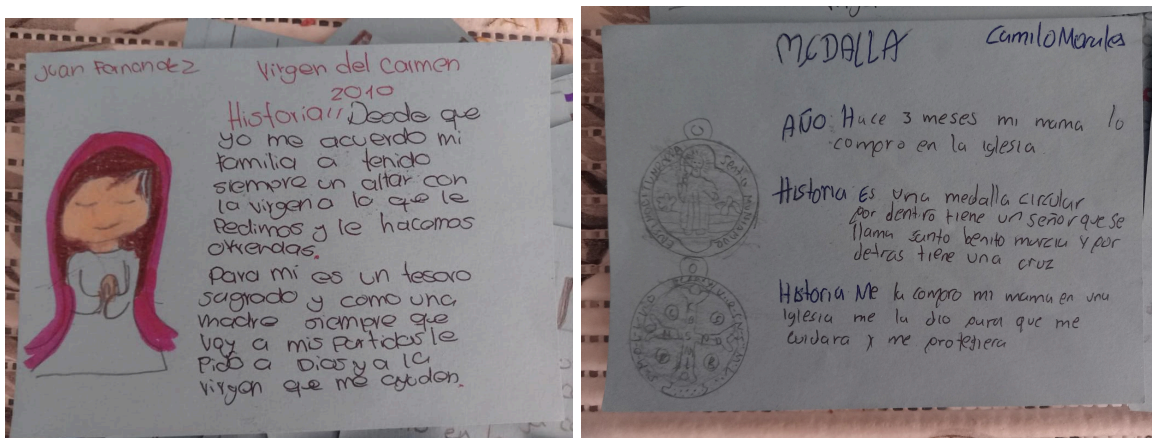 Juan Fernandez
Virgen del Carmen
2010
Historia// Desde que
yo me acuerdo mi
familia a tenido
siempre un altar con
la virgen a la que le
Pedimos y le hacemos
ofrendas.
Para mi es un tesoro
sagrado y como una
madre siempre que
voy a mis partidos le
Pido a Dios y a la
virgen que me ayuden.
MEDALLA
Camilo Morales
AÑO: Hace 3 meses mi mama lo
compro en la iglesia
Historia Es una medalla circular
por dentro tiene un señor que se
llama santo benito murciu y por
detras tiene una cruz
Historia Me la compro mi mama en una
iglesia me la dio para que me
cuidara y me protegiera